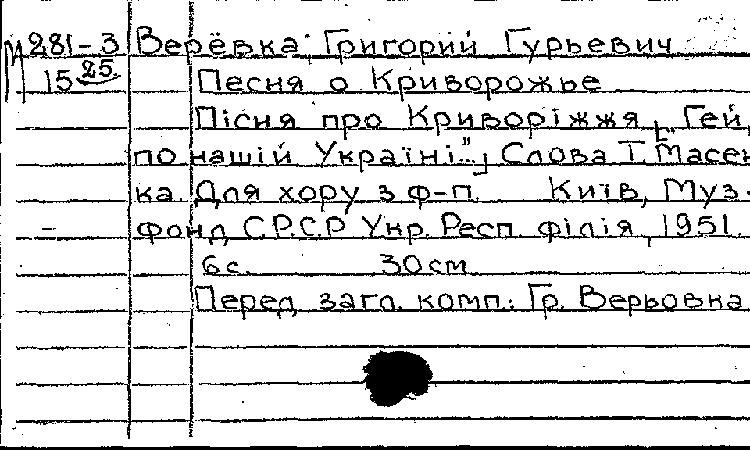 М 281-3 Верёвка, Григорий Гурьевич
15 25 Песня о Криворожье
Пісня про Криворіжжя ["Гей,
по нашій Україні..."] Слова Т. Масен
ка. Для хору з ф-п. Київ, Муз.
фонд СРСР Укр. Респ. філія, 1951.
6 с. 30 см.
Перед загл. комп.: Гр. Верьовка